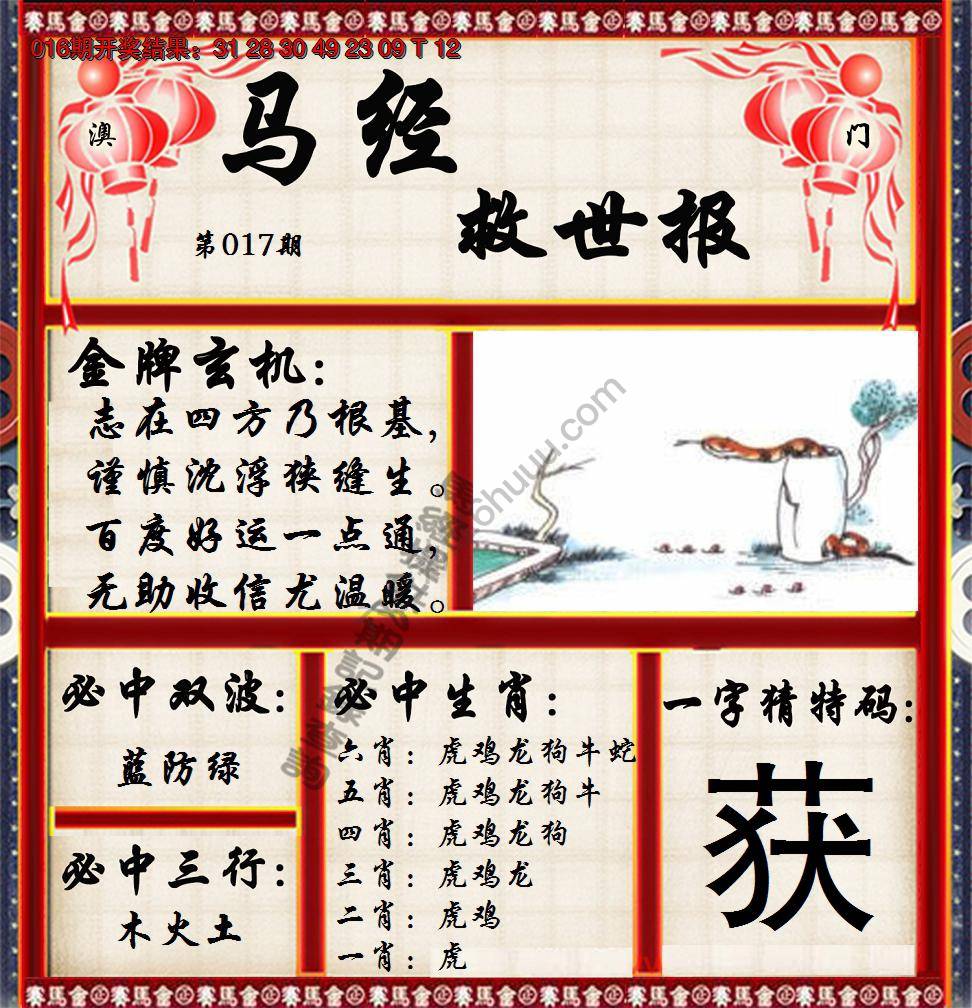 016期开奖结果：31 28 30 49 23 09 T 12
澳
门
马经
救世报
第017期
金牌玄机：
志在四方乃根基，
谨慎沈浮狭缝生。
百度好运一点通，
无助收信尤温暖。
必中双波：
蓝防绿
必中三行：
木火土
必中生肖：
六肖：虎鸡龙狗牛蛇
五肖：虎鸡龙狗牛
四肖：虎鸡龙狗
三肖：虎鸡龙
二肖：虎鸡
一肖：虎
一字猜特码：
获